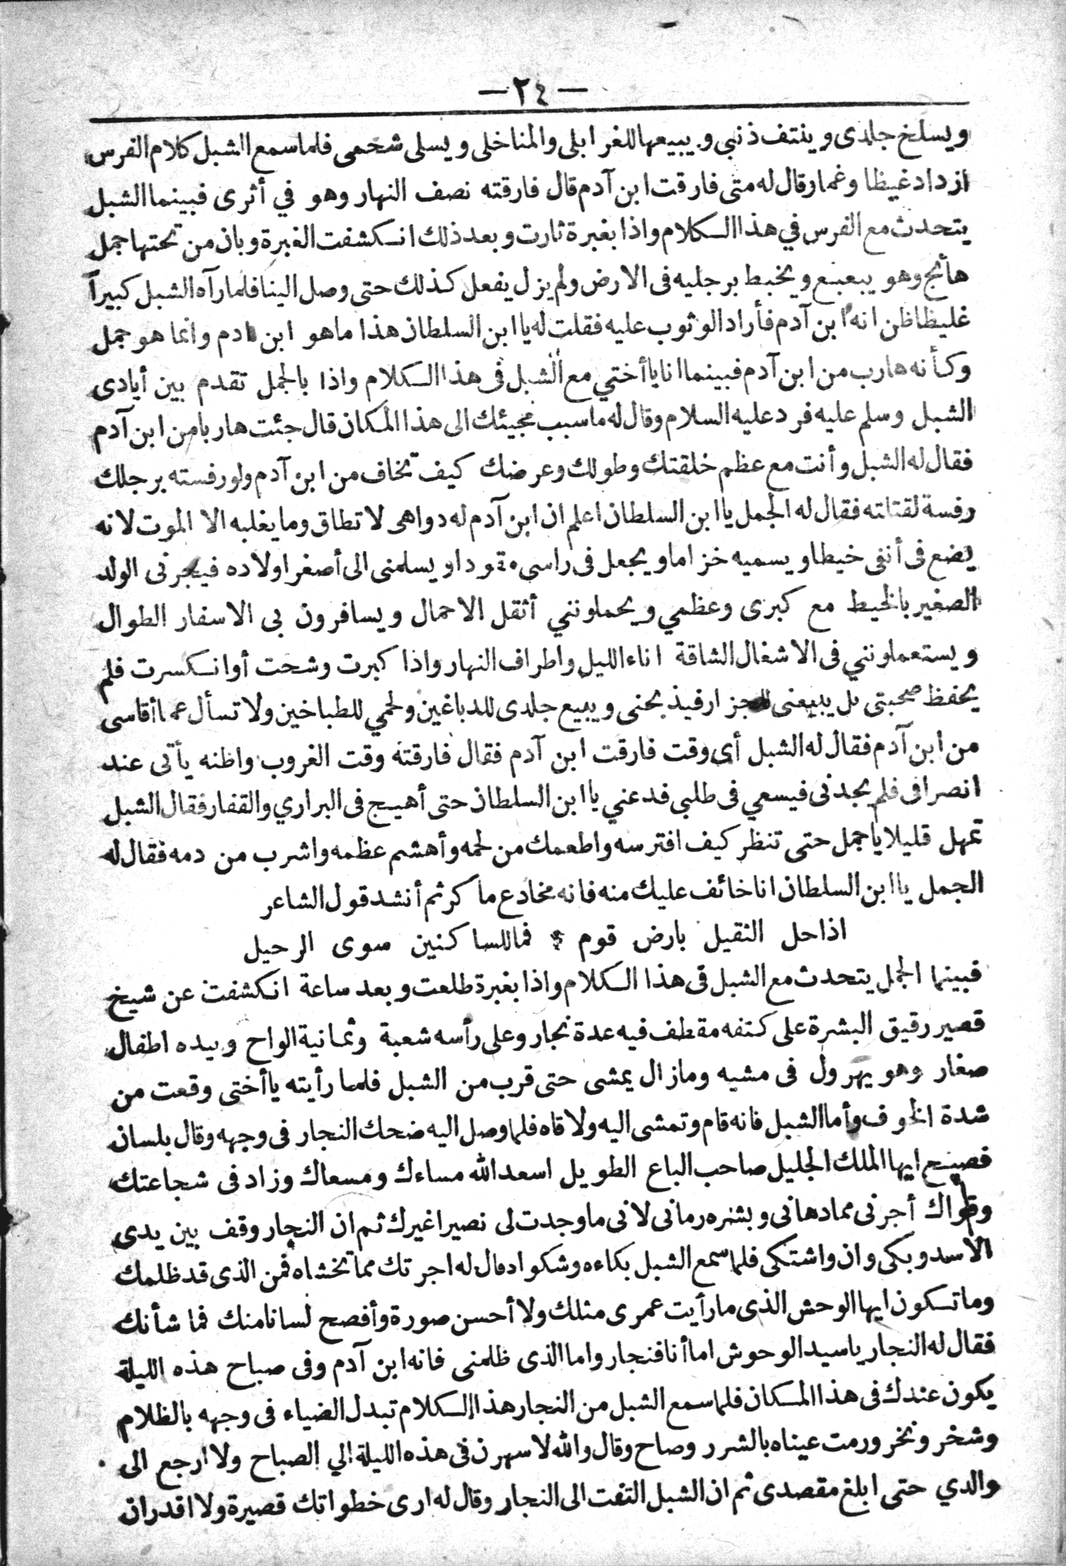 — ٢٤ —
ويسلخ جلدى وينتف ذنبي ويبيعها للغرابلى والمناخلى ويسلى شحمى فلما سمع الشبل كلام الفرس
ازداد غيظا وغما وقال له متى فارقت ابن آدم قال فارقته نصف النهار وهو في أثرى فبينما الشبل
يتحدث مع الفرس في هذا الكلام واذا بغبرة ثارت وبعد ذلك انكشفت الغبرة وبان من تحتها جمل
هائج وهو يبعبع ويخبط برجليه فى الارض ولم يزل يفعل كذلك حتى وصل الينا فلما رآه الشبل كبيرآ
غليظا ظن انه ابن آدم فأراد الوثوب عليه فقلت له يا ابن السلطان هذا ما هو ابن ادم وانما هو جمل
وكأنه هارب من ابن آدم فبينما انا يا أختي مع الشبل فى هذا الكلام واذا بالجمل تقدم بين أيادى
الشبل وسلم عليه فرد عليه السلام وقال له ما سبب مجيئك الى هذا المكان قال جئت هاربا من ابن آدم
فقال له الشبل وأنت مع عظم خلقتك وطولك وعرضك كيف تخاف من ابن آدم ولو رفسته برجلك
رفسة لقتلته فقال له الجمل يا ابن السلطان اعلم ان ابن آدم له دواهى لا تطاق وما يغلبه الا الموت لانه
يضع فى أنفى خيطا ويسميه خزاما ويجعل فى راسي مقودا ويسلمنى الى أصغر اولاده فيجرنى الولد
الصغير بالخيط مع كبرى وعظمي ويحملونني أثقل الاحمال ويسافرون بى الاسفار الطوال
ويستعملونني فى الاشغال الشاقة اناء الليل واطراف النهار واذا كبرت وشحت أو انكسرت فلم
يحفظ صحبتى بل يبيعنى للجزار فيذبحنى ويبيع جلدى للدباغين ولحمي للطباخين ولا تسأل عما أقاسى
من ابن آدم فقال له الشبل أى وقت فارقت ابن آدم فقال فارقته وقت الغروب واظنه يأتى عند
انصرافى فلم يجدنى فيسعي فى طلبى فدعني يا ابن السلطان حتى أهيج فى البراري والقفار فقال الشبل
تمهل قليلا يا جمل حتى تنظر كيف افترسه واطعمك من لحمه وأهشم عظمه واشرب من دمه فقال له
الجمل يا ابن السلطان انا خائف عليك منه فانه مخادع ماكر ثم أنشد قول الشاعر
اذا حل الثقيل بارض قوم * فما للساكنين سوى الرحيل
فبينما الجمل يتحدث مع الشبل فى هذا الكلام واذا بغبرة طلعت وبعد ساعة انكشفت عن شيخ
قصير رقيق البشرة على كتفه مقطف فيه عدة نجار وعلى رأسه شعبة وثمانية الواح وبيده اطفال
صغار وهو يهرول فى مشيه وما زال يمشى حتى قرب من الشبل فلما رأيته يا أختى وقعت من
شدة الخوف وأما الشبل فانه قام وتمشى اليه ولاقاه فلما وصل اليه ضحك النجار فى وجهه وقال بلسان
فصيح ايها الملك الجليل صاحب الباع الطويل اسعد الله مساءك ومسعاك وزاد فى شجاعتك
وقواك أجرنى مما دهانى وبشره رمانى لانى ما وجدت لى نصيرا غيرك ثم ان النجار وقف بين يدى
الاسد وبكى وان واشتكى فلما سمع الشبل بكاءه وشكواه قال له اجرتك مما تخشاه فمن الذى قد ظلمك
وما تكون ايها الوحش الذى ما رأيت عمرى مثلك ولا أحسن صورة وأفصح لسانا منك فما شأنك
فقال له النجار يا سيد الوحوش اما أنا فنجار واما الذى ظلمنى فانه ابن آدم وفى صباح هذه الليلة
يكون عندك فى هذا المكان فلما سمع الشبل من النجار هذا الكلام تبدل الضياء فى وجهه بالظلام
وشخر ونخر ورمت عيناه بالشرر وصاح وقال والله لاسهرن فى هذه الليلة الي الصباح ولا ارجع الى
والدي حتى ابلغ مقصدى ثم ان الشبل التفت الى النجار وقال له ارى خطواتك قصيرة ولا اقدر ان